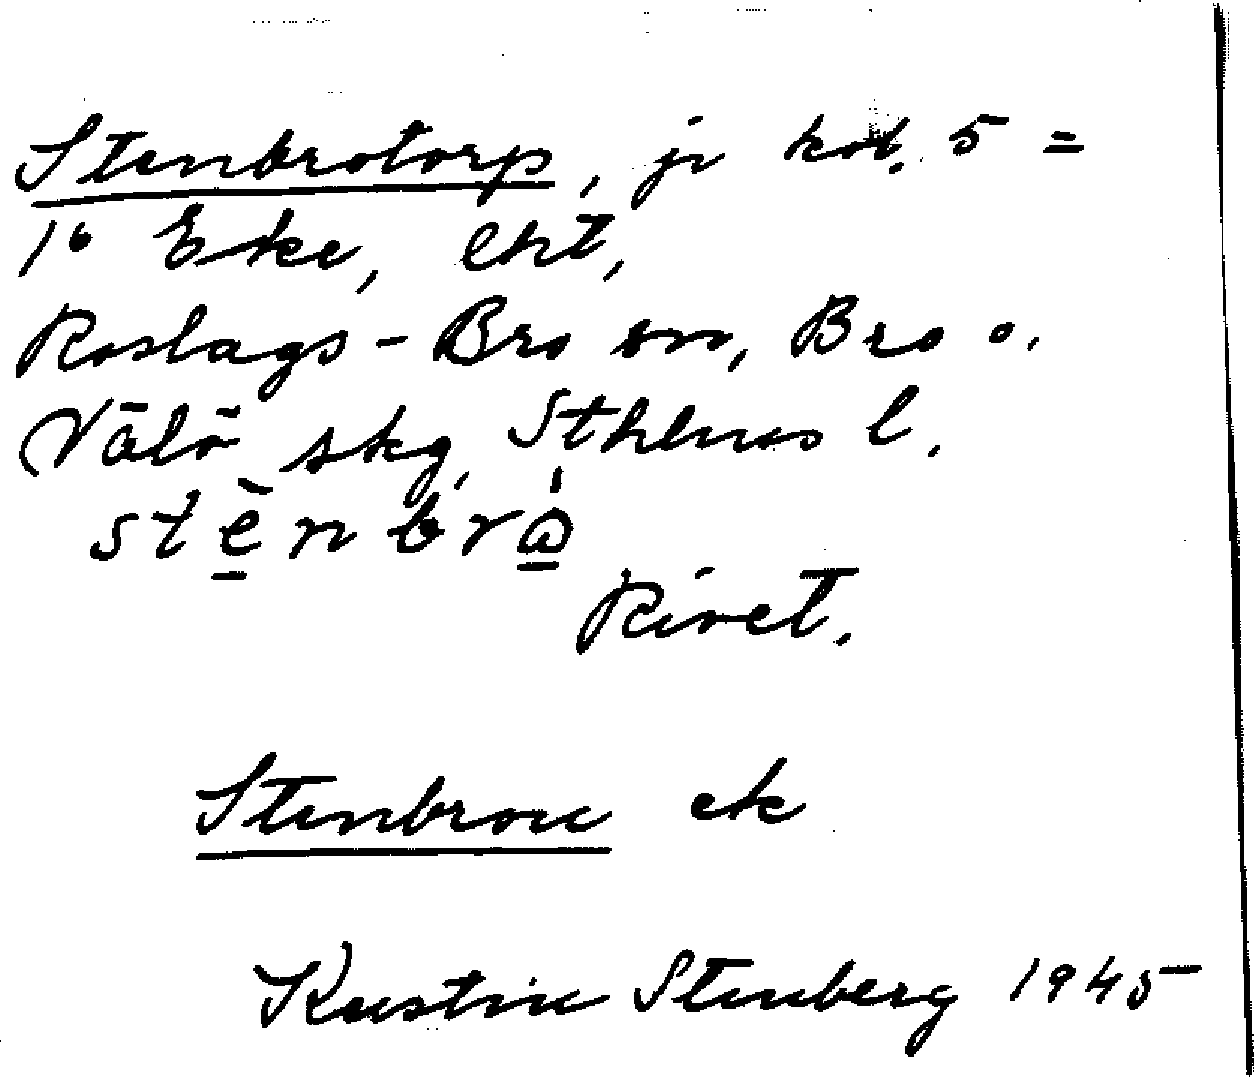 Stenbrotorp, jr kat. 5 =
1⁶ Eke, lht,
Roslags-Bro sn, Bro o.
Vätö skg, Sthlms l.
stènbrò
Rivet.
Stenbrou ek
Kerstin Stenberg 1945